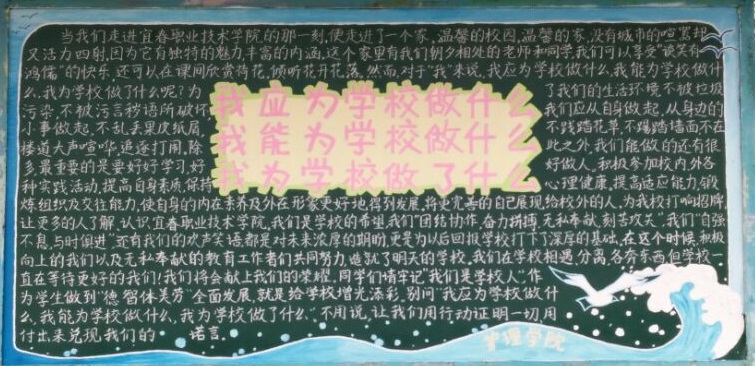 当我们走进宜春职业技术学院的那一刻,便走进了一个家,温馨的校园,温馨的家,没有城市的喧嚣却
又活力四射,因为它有独特的魅力丰富的内涵,这个家里有我们朝夕相处的老师和同学我们可以享受"谈笑有
鸿儒"的快乐,还可以在课间欣赏荷花,倾听花开花落,然而,对于"我"来说,我应为学校做什么,我能为学校做什
么,我为学校做了什么呢?为
了我们的生活环境不被垃圾
污染,不被污言秽语所破坏
我们应从自身做起,从身边的
小事做起,不乱丢果皮纸屑
不践踏花草,不踢踏墙面不在
楼道大声喧哗,追逐打闹,除
此之外,我们能做的还有很
多,最重要的是要好好学习,好
好做人,积极参加校内外各
种实践活动,提高自身素质,保持
心理健康,提高适应能力,锻
我应为学校做什么
我能为学校做什么
我为学校做了什么
炼组织及交往能力,使自身的内在素养及外在形象更好地得到发展,将更完善的自己展现给校外的人,为我校打响招牌,
让更多的人了解、认识宜春职业技术学院,我们是学校的希望,我们"团结协作,奋力拼搏,无私奉献,刻苦攻关",我们"自强
不息,与时俱进",还有我们的欢声笑语,都是对未来浓厚的期盼,更是为以后回报学校打下了深厚的基础,在这个时候,积极
向上的我们以及无私奉献的教育工作者们共同努力,造就了明天的学校,我们在学校相遇,分离,各奔东西但学校一
直在等待更好的我们!我们将会献上我们的荣耀,同学们请牢记"我们是学校人",作
为学生做到"德智体美劳"全面发展,就是给学校增光添彩,别问"我应为学校做什
么,我能为学校做什么,我为学校做了什么",不用说,让我们用行动证明一切用
付出来兑现,我们的 诺言.
护理学院